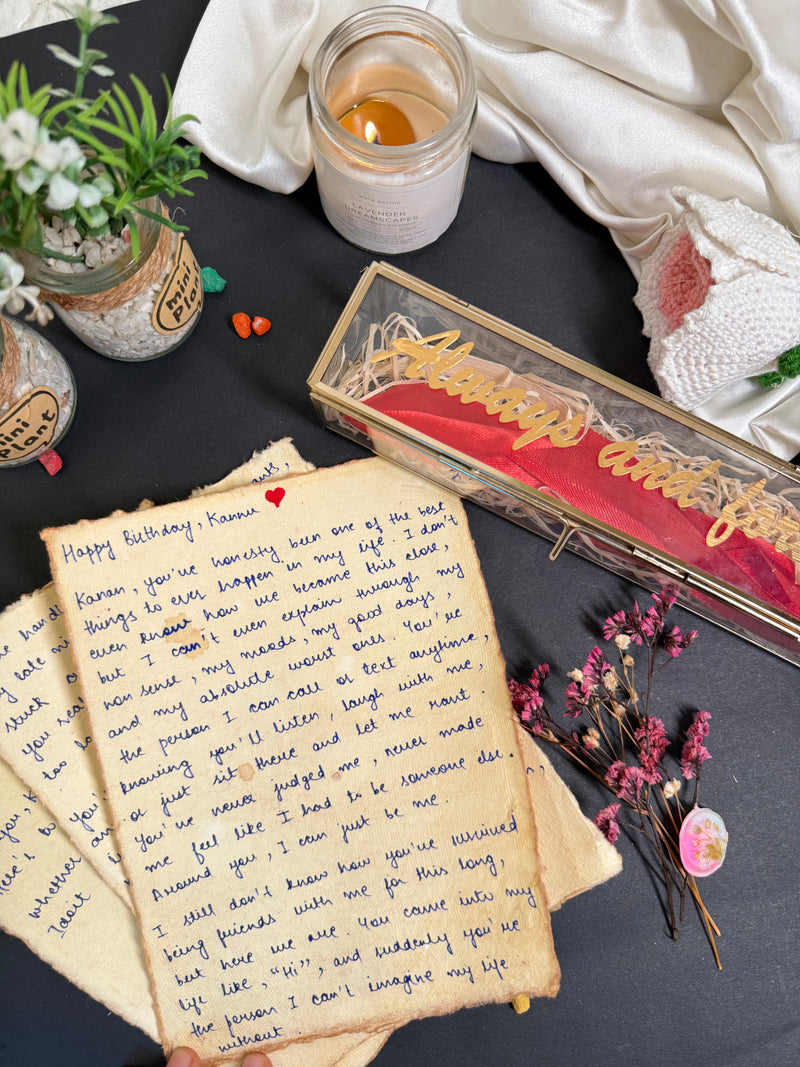 LAVENDER
DREAMSCAPES
mini
plant
mini
plant
Always and for
Happy Birthday, Kannu
Kanan, you've honesty been one of the best
things to ever happen in my life. I don't
even know how we became this close,
but I can't even explain through my
non sense, my moods, my good days,
and my absolute worst ones. You're
the person I can call or text anytime,
knowing you'll listen, laugh with me,
or just sit there and let me rant.
You've never judged me, never made
me feel like I had to be someone else.
Around you, I can just be me.
I still don't know how you've survived
being friends with me for this long,
but here we are. You came into my
life like, "Hi", and suddenly you're
the person I can't imagine my life
without.
stuck
you real
too
whether
Idoit